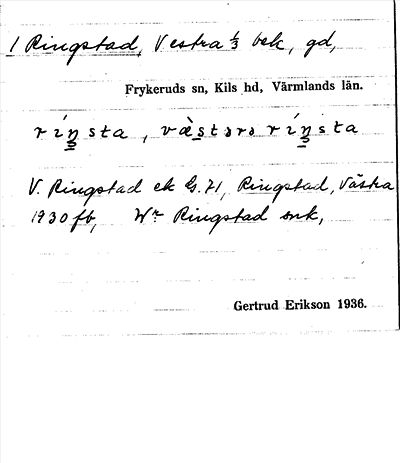 1 Ringstad, Vestra 1/3 bek, gd,
Frykeruds sn, Kils hd, Värmlands län.
V. Ringstad ek G. 71, Ringstad, Västra
1930 fb, Wr Ringstad snk,
Gertrud Erikson 1936.